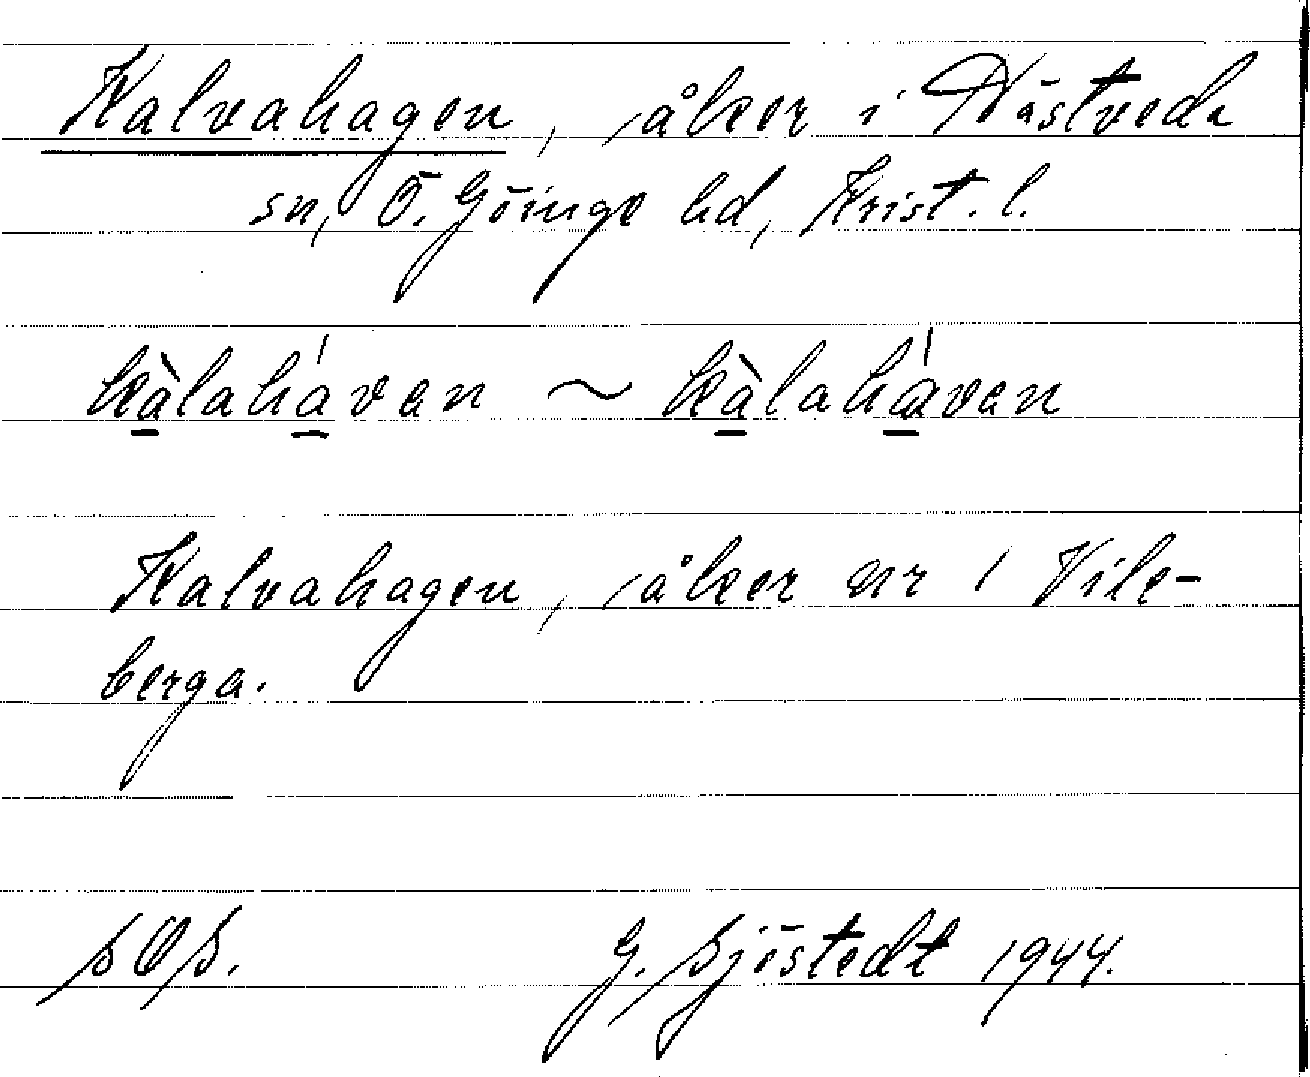 Kalvahagen, åker i Nästveda
sn, Ö. Göinge hd, Krist. l.
kàlaháven ~ kàlaháven
Kalvahagen, åker nr 1 Vile-
berga.
SOS.
G. Sjöstedt 1944.